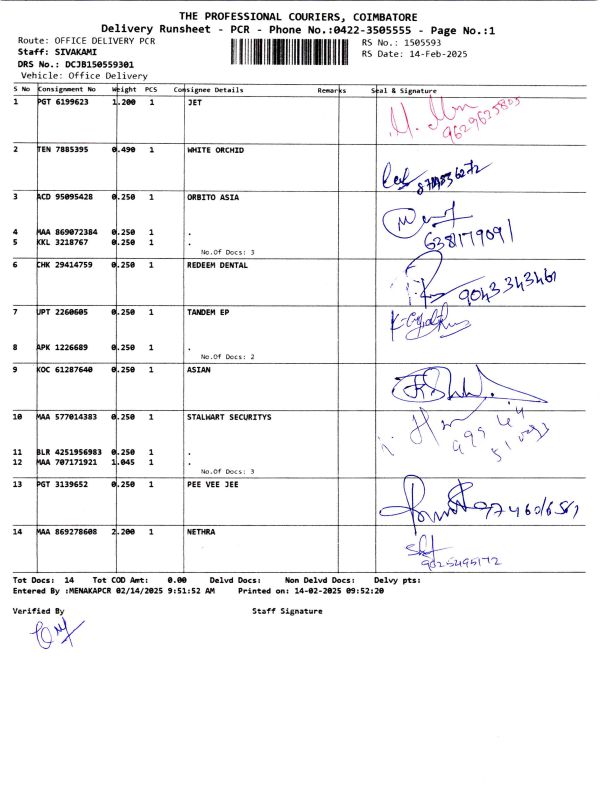 THE PROFESSIONAL COURIERS, COIMBATORE
Delivery Runsheet - PCR - Phone No.:0422-3505555 - Page No.:1
Route: OFFICE DELIVERY PCR
RS No.: 1505593
Staff: SIVAKAMI
RS Date: 14-Feb-2025
DRS No.: DCJB150559301
Vehicle: Office Delivery
S No Consignment No Weight PCS Consignee Details Remarks Seal & Signature
1 PGT 6199623 1.200 1 JET
9629625805
2 TEN 7885395 0.490 1 WHITE ORCHID
3 ACD 95095428 0.250 1 ORBITO ASIA
4 MAA 869072384 0.250 1 .
6381179091
5 KKL 3218767 0.250 1 .
No.Of Docs: 3
6 CHK 29414759 0.250 1 REDEEM DENTAL
9043343461
7 UPT 2260605 0.250 1 TANDEM EP
8 APK 1226689 0.250 1 .
No.Of Docs: 2
9 KOC 61287640 0.250 1 ASIAN
10 MAA 577014383 0.250 1 STALWART SECURITYS
11 BLR 4251956983 0.250 1 .
12 MAA 707171921 1.045 1 .
No.Of Docs: 3
13 PGT 3139652 0.250 1 PEE VEE JEE
14 MAA 869278608 2.200 1 NETHRA
9025495172
Tot Docs: 14 Tot COD Amt: 0.00 Delvd Docs: Non Delvd Docs: Delvy pts:
Entered By :MENAKAPCR 02/14/2025 9:51:52 AM Printed on: 14-02-2025 09:52:20
Verified By Staff Signature